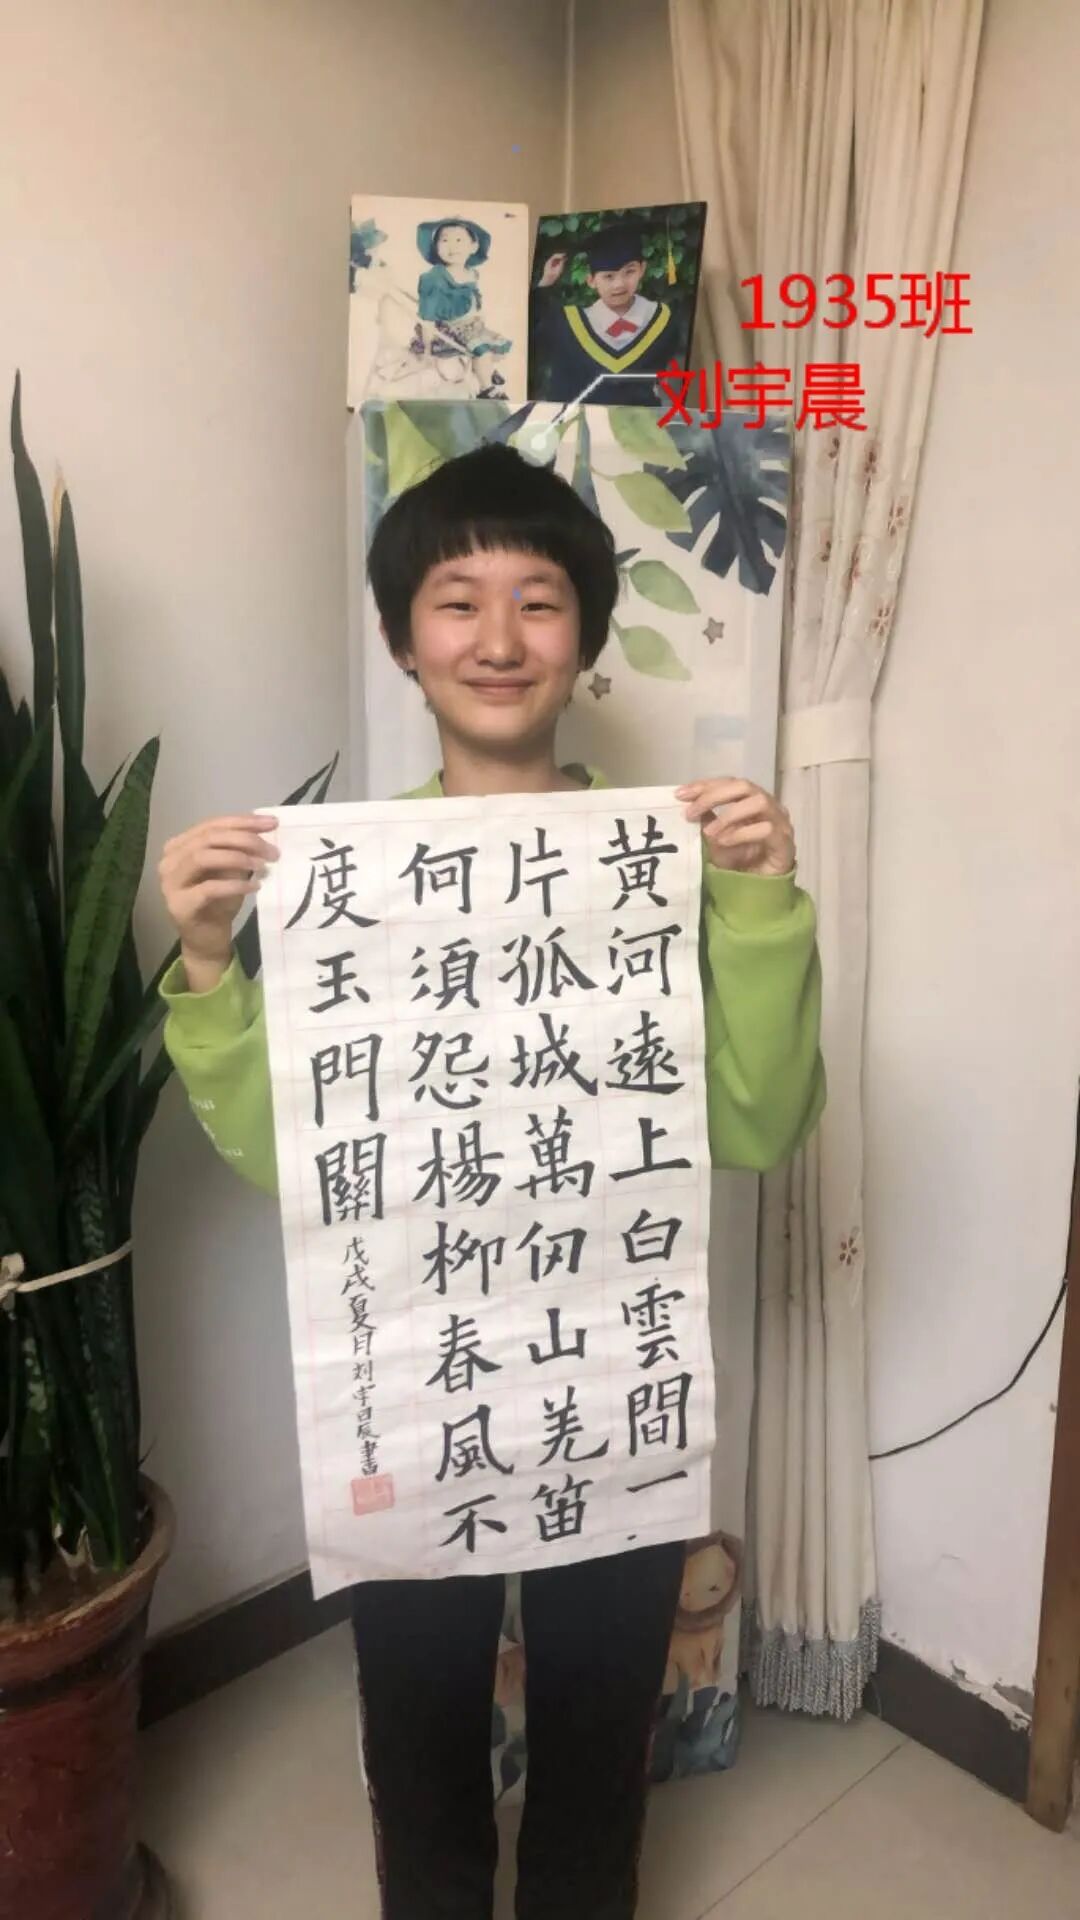 1935班
刘宇晨
黄河遠上白雲間一
片孤城萬仞山羌笛
何須怨楊柳春風不
度玉門關
戊戌夏月刘宇晨書